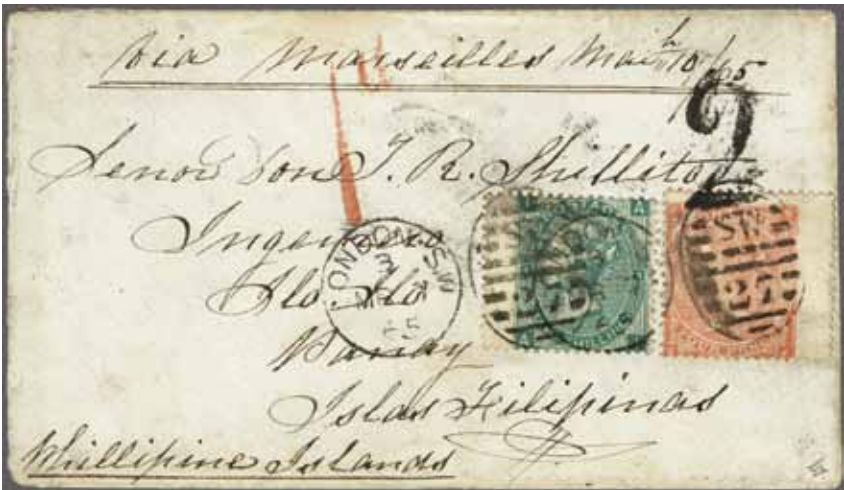 via Marseilles Mail 10/65
2
Senor Don J. R. Shillito
Ingeniero
Ilo Ilo
Panay
Islas Filipinas
Phillipine Islands
LONDON S.W
3
65
SW
27
SW
27